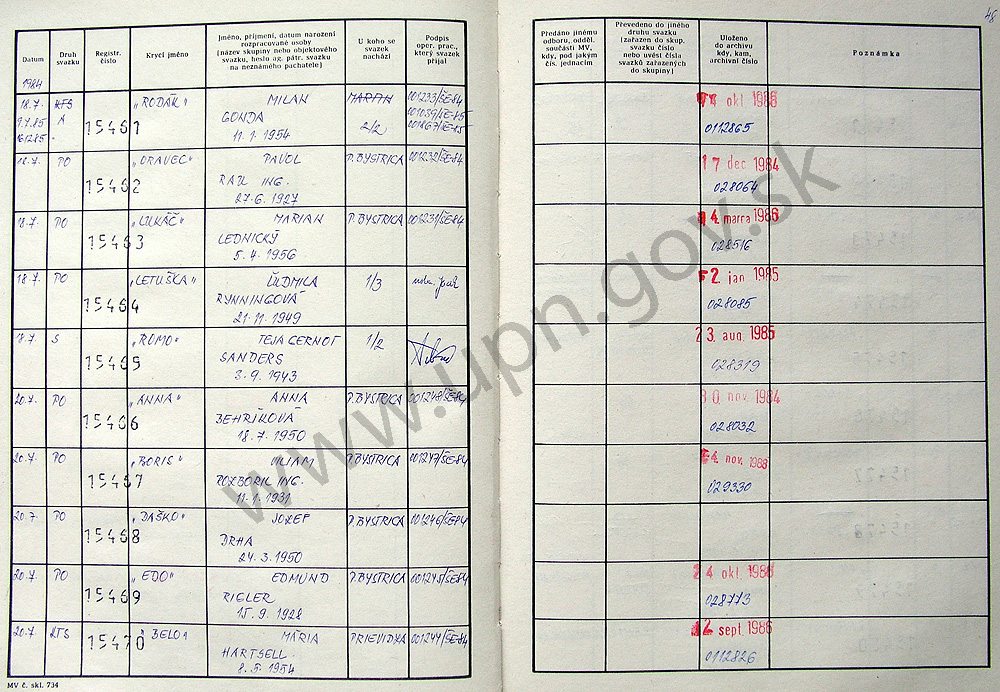 48
Datum
Druh svazku
Registr. číslo
Krycí jméno
Jméno, příjmení, datum narození rozpracované osoby (název skupiny nebo objektového svazku, heslo ag. pátr. svazku na neznámého pachatele)
U koho se svazek nachází
Podpis oper. prac., který svazek přijal
Předáno jinému odboru, odděl. součásti MV, kdy, pod jakým čís. jednacím
Převedeno do jiného druhu svazku (zařazen do skup. svazku číslo nebo uvést čísla svazků zařazených do skupiny)
Uloženo do archivu kdy, kam, archivní číslo
Poznámka
1984
18.7. KTS „RODÁK“ MILAN MARTIN 001233/ŠE-84 okt 1986
9.7.85 A 15461 GONDA 2/2 0112865
11.1.1954
18.7. PO „ORAVEC“ PAVOL P. BYSTRICA 001232/ŠE-84 17 dec 1984
15462 RAU ING. 028064
27.6.1927
18.7. PO „LUKÁČ“ MARIAN P. BYSTRICA 001231/ŠE-84 4 marca 1986
15463 LEDNICKÝ 028516
5.4.1956
18.7. PO „LETUŠKA“ ĽUDMILA 1/3 2 jan 1985
15464 RYNNINGOVÁ 028085
21.11.1949
18.7. S „ROMO“ TEJA CERNOT 1/2 23 aug 1985
15465 SANDERS 028319
3.9.1943
20.7. PO „ANNA“ ANNA P. BYSTRICA 001248/ŠE-84 30 nov 1984
15466 BEHRÍKOVÁ 028032
18.7.1950
20.7. PO „BORIS“ VILIAM P. BYSTRICA 001247/ŠE-84 nov. 1988
15467 ROZBORIL ING. 029330
11.1.1931
20.7. PO „DAŠKO“ JOZEF P. BYSTRICA 001246/ŠE-84
15468 DRHA
24.3.1950
20.7. PO „EDO“ EDMUND P. BYSTRICA 001245/ŠE-84 24 okt 1986
15469 RIGLER 028773
15.9.1928
20.7. KTS „BELO“ MÁRIA PRIEVIDZA 001244/ŠE-84 sept. 1986
15470 HARTSELL 0112826
8.5.1954
MV č. skl. 734
www.upn.gov.sk